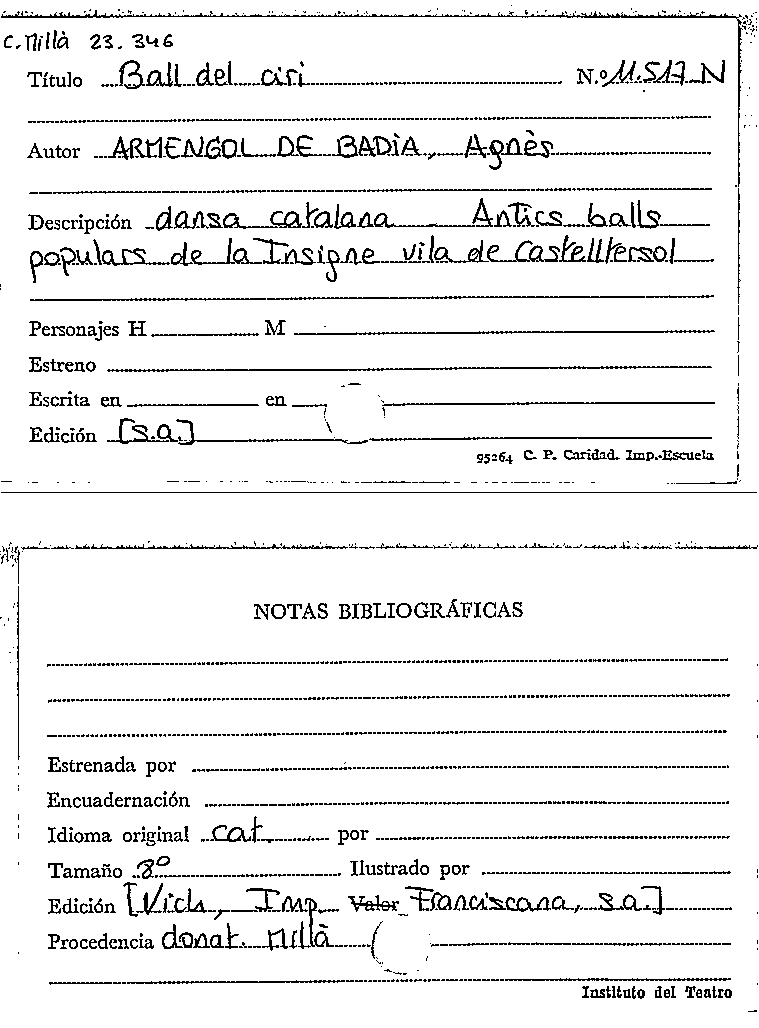 C. Millà 23.346
Título Ball del ciri N.º 11.517 N
Autor ARMENGOL DE BADIA, Agnès
Descripción dansa catalana - Antics balls
populars de la Insigne vila de Castelltersol
Personajes H M
Estreno
Escrita en en
Edición [s.a.]
95264 C. P. Caridad. Imp.-Escuela
NOTAS BIBLIOGRÁFICAS
Estrenada por
Encuadernación
Idioma original cat. por
Tamaño 8º Ilustrado por
Edición [Vich, Imp. Valor Franciscana, s.a.]
Procedencia donat. Millà
Instituto del Teatro